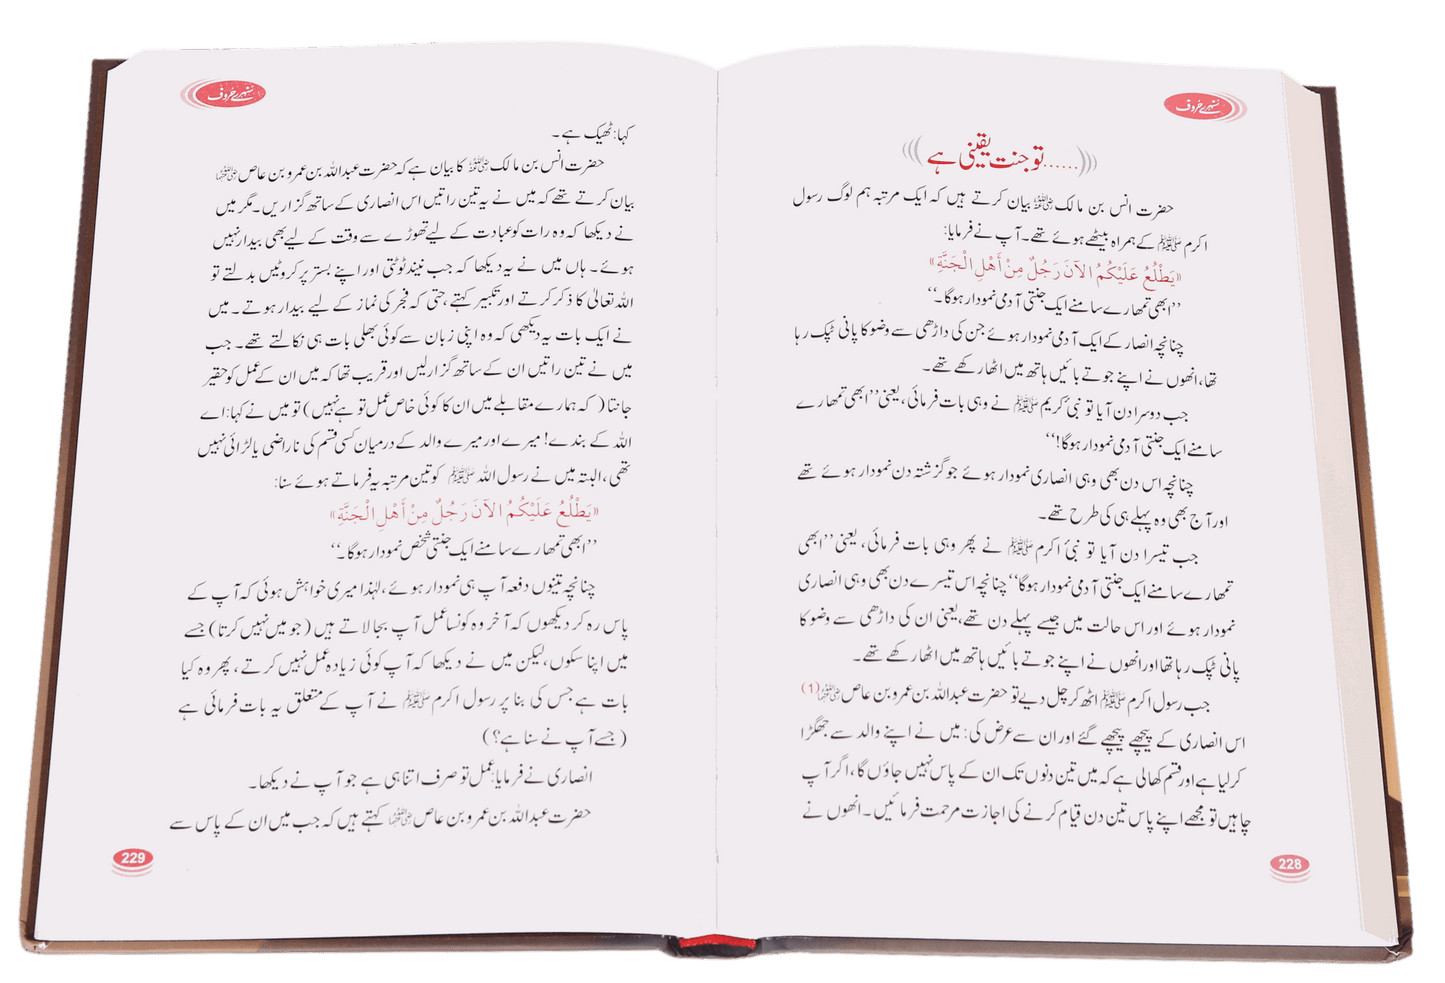 سنہرے حُروف
......تو جنت یقینی ہے
حضرت انس بن مالک ؓ بیان کرتے ہیں کہ ایک مرتبہ ہم لوگ رسول
اکرم ﷺ کے ہمراہ بیٹھے ہوئے تھے۔ آپ نے فرمایا:
«يَطْلُعُ عَلَيْكُمُ الآنَ رَجُلٌ مِنْ أَهْلِ الْجَنَّةِ»
’’ابھی تمھارے سامنے ایک جنتی آدمی نمودار ہوگا۔‘‘
چنانچہ انصار کے ایک آدمی نمودار ہوئے جن کی داڑھی سے وضو کا پانی ٹپک رہا
تھا، انھوں نے اپنے جوتے بائیں ہاتھ میں اٹھا رکھے تھے۔
جب دوسرا دن آیا تو نبیٔ کریم ﷺ نے وہی بات فرمائی، یعنی ’’ابھی تمھارے
سامنے ایک جنتی آدمی نمودار ہوگا!‘‘
چنانچہ اس دن بھی وہی انصاری نمودار ہوئے جو گزشتہ دن نمودار ہوئے تھے
اور آج بھی وہ پہلے ہی کی طرح تھے۔
جب تیسرا دن آیا تو نبیٔ اکرم ﷺ نے پھر وہی بات فرمائی، یعنی ’’ابھی
تمھارے سامنے ایک جنتی آدمی نمودار ہوگا‘‘ چنانچہ اس تیسرے دن بھی وہی انصاری
نمودار ہوئے اور اس حالت میں جیسے پہلے دن تھے، یعنی ان کی داڑھی سے وضو کا
پانی ٹپک رہا تھا اور انھوں نے اپنے جوتے بائیں ہاتھ میں اٹھا رکھے تھے۔
جب رسول اکرم ﷺ اٹھ کر چل دیے تو حضرت عبداللہ بن عمرو بن عاص ؓ (1)
اس انصاری کے پیچھے پیچھے گئے اور ان سے عرض کی: میں نے اپنے والد سے جھگڑا
کرلیا ہے اور قسم کھالی ہے کہ میں تین دنوں تک ان کے پاس نہیں جاؤں گا، اگر آپ
چاہیں تو مجھے اپنے پاس تین دن قیام کرنے کی اجازت مرحمت فرمائیں۔ انھوں نے
228
سنہرے حُروف
کہا: ٹھیک ہے۔
حضرت انس بن مالک ؓ کا بیان ہے کہ حضرت عبداللہ بن عمرو بن عاص ؓ
بیان کرتے تھے کہ میں نے یہ تین راتیں اس انصاری کے ساتھ گزاریں۔ مگر میں
نے دیکھا کہ وہ رات کو عبادت کے لیے تھوڑے سے وقت کے لیے بھی بیدار نہیں
ہوئے۔ ہاں میں نے یہ دیکھا کہ جب نیند ٹوٹتی اور اپنے بستر پر کروٹیں بدلتے تو
اللہ تعالیٰ کا ذکر کرتے اور تکبیر کہتے، حتی کہ فجر کی نماز کے لیے بیدار ہوتے۔ میں
نے ایک بات یہ دیکھی کہ وہ اپنی زبان سے کوئی بھلی بات ہی نکالتے تھے۔ جب
میں نے تین راتیں ان کے ساتھ گزارلیں اور قریب تھا کہ میں ان کے عمل کو حقیر
جانتا (کہ ہمارے مقابلے میں ان کا کوئی خاص عمل تو ہے نہیں) تو میں نے کہا: اے
اللہ کے بندے! میرے اور میرے والد کے درمیان کسی قسم کی ناراضی یا لڑائی نہیں
تھی، البتہ میں نے رسول اللہ ﷺ کو تین مرتبہ یہ فرماتے ہوئے سنا:
«يَطْلُعُ عَلَيْكُمُ الآنَ رَجُلٌ مِنْ أَهْلِ الْجَنَّةِ»
’’ابھی تمھارے سامنے ایک جنتی شخص نمودار ہوگا۔‘‘
چنانچہ تینوں دفعہ آپ ہی نمودار ہوئے، لہٰذا میری خواہش ہوئی کہ آپ کے
پاس رہ کر دیکھوں کہ آخر وہ کونسا عمل آپ بجا لاتے ہیں (جو میں نہیں کرتا) جسے
میں اپنا سکوں، لیکن میں نے دیکھا کہ آپ کوئی زیادہ عمل نہیں کرتے، پھر وہ کیا
بات ہے جس کی بنا پر رسول اکرم ﷺ نے آپ کے متعلق یہ بات فرمائی ہے
(جسے آپ نے سنا ہے؟)
انصاری نے فرمایا: عمل تو صرف اتنا ہی ہے جو آپ نے دیکھا۔
حضرت عبداللہ بن عمرو بن عاص ؓ کہتے ہیں کہ جب میں ان کے پاس سے
229